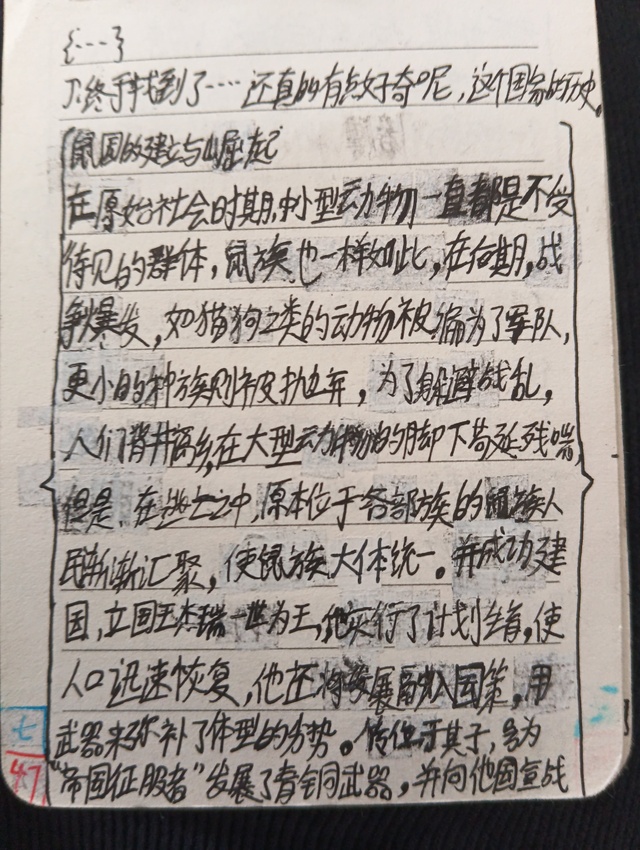 {····}
J:终于找到了····还真的有点好奇呢,这个国家的历史。
鼠国的建立与崛起
在原始社会时期,中小型动物一直都是不受
待见的群体,鼠族也一样如此,在何期,战
争爆发,如猫狗之类的动物被编为了军队,
更小的种族则被抛弃,为了躲避战乱,
人们背井离乡,在大型动物的脚下苟延残喘,
但是,在逃亡之中,原本位于各部族的鼠族人
民渐渐汇聚,使鼠族大体统一。并成功建
国,立国王杰瑞一世为王,他实行了计划生育,使
人口迅速恢复,他还将发展 入国策,用
武器来弥补了体型的劣势。传位于其子,号为
“帝国征服者”发展了青铜武器,并向他国宣战
七
47